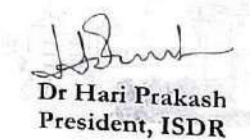 Dr Hari Prakash
President, ISDR